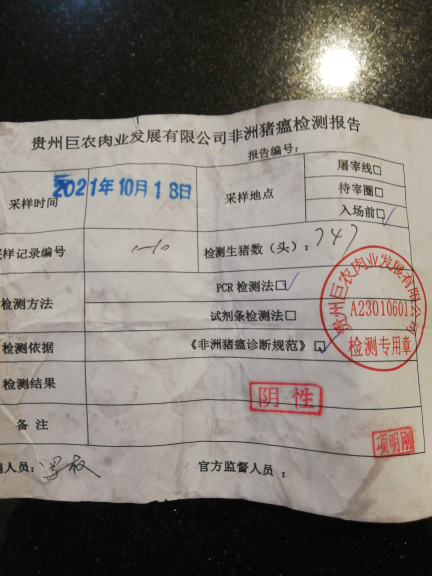 贵州巨农肉业发展有限公司非洲猪瘟检测报告
报告编号：
采样时间
2021年10月18日
采样地点
屠宰线□
待宰圈□
入场前□✓
采样记录编号
1-10
检测生猪数（头）：747
检测方法
PCR检测法□✓
试剂条检测法□
检测依据
《非洲猪瘟诊断规范》□✓
检测结果
阴性
备注
贵州巨农肉业发展有限公司
A23010601
检测专用章
项明刚
测人员：
官方监督人员：